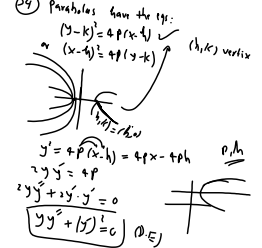 24) Parabolas have the eqs:
(y-k)² = 4p(x-h) ✓
or (x-h)² = 4p(y-k)
(h,k) vertix
(h,k)=(h,0)
y² = 4p(x-h) = 4px - 4ph
p, h
2yy' = 4p
2yy'' + 2y'·y' = 0
yy'' + (y')² = 0 (D.E)